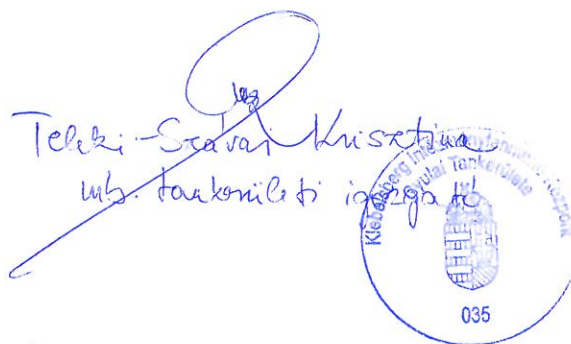 Teleki-Szávai Krisztina
mb. tankerületi igazgató
Klebelsberg Intézményfenntartó Központ
Gyulai Tankerülete
035